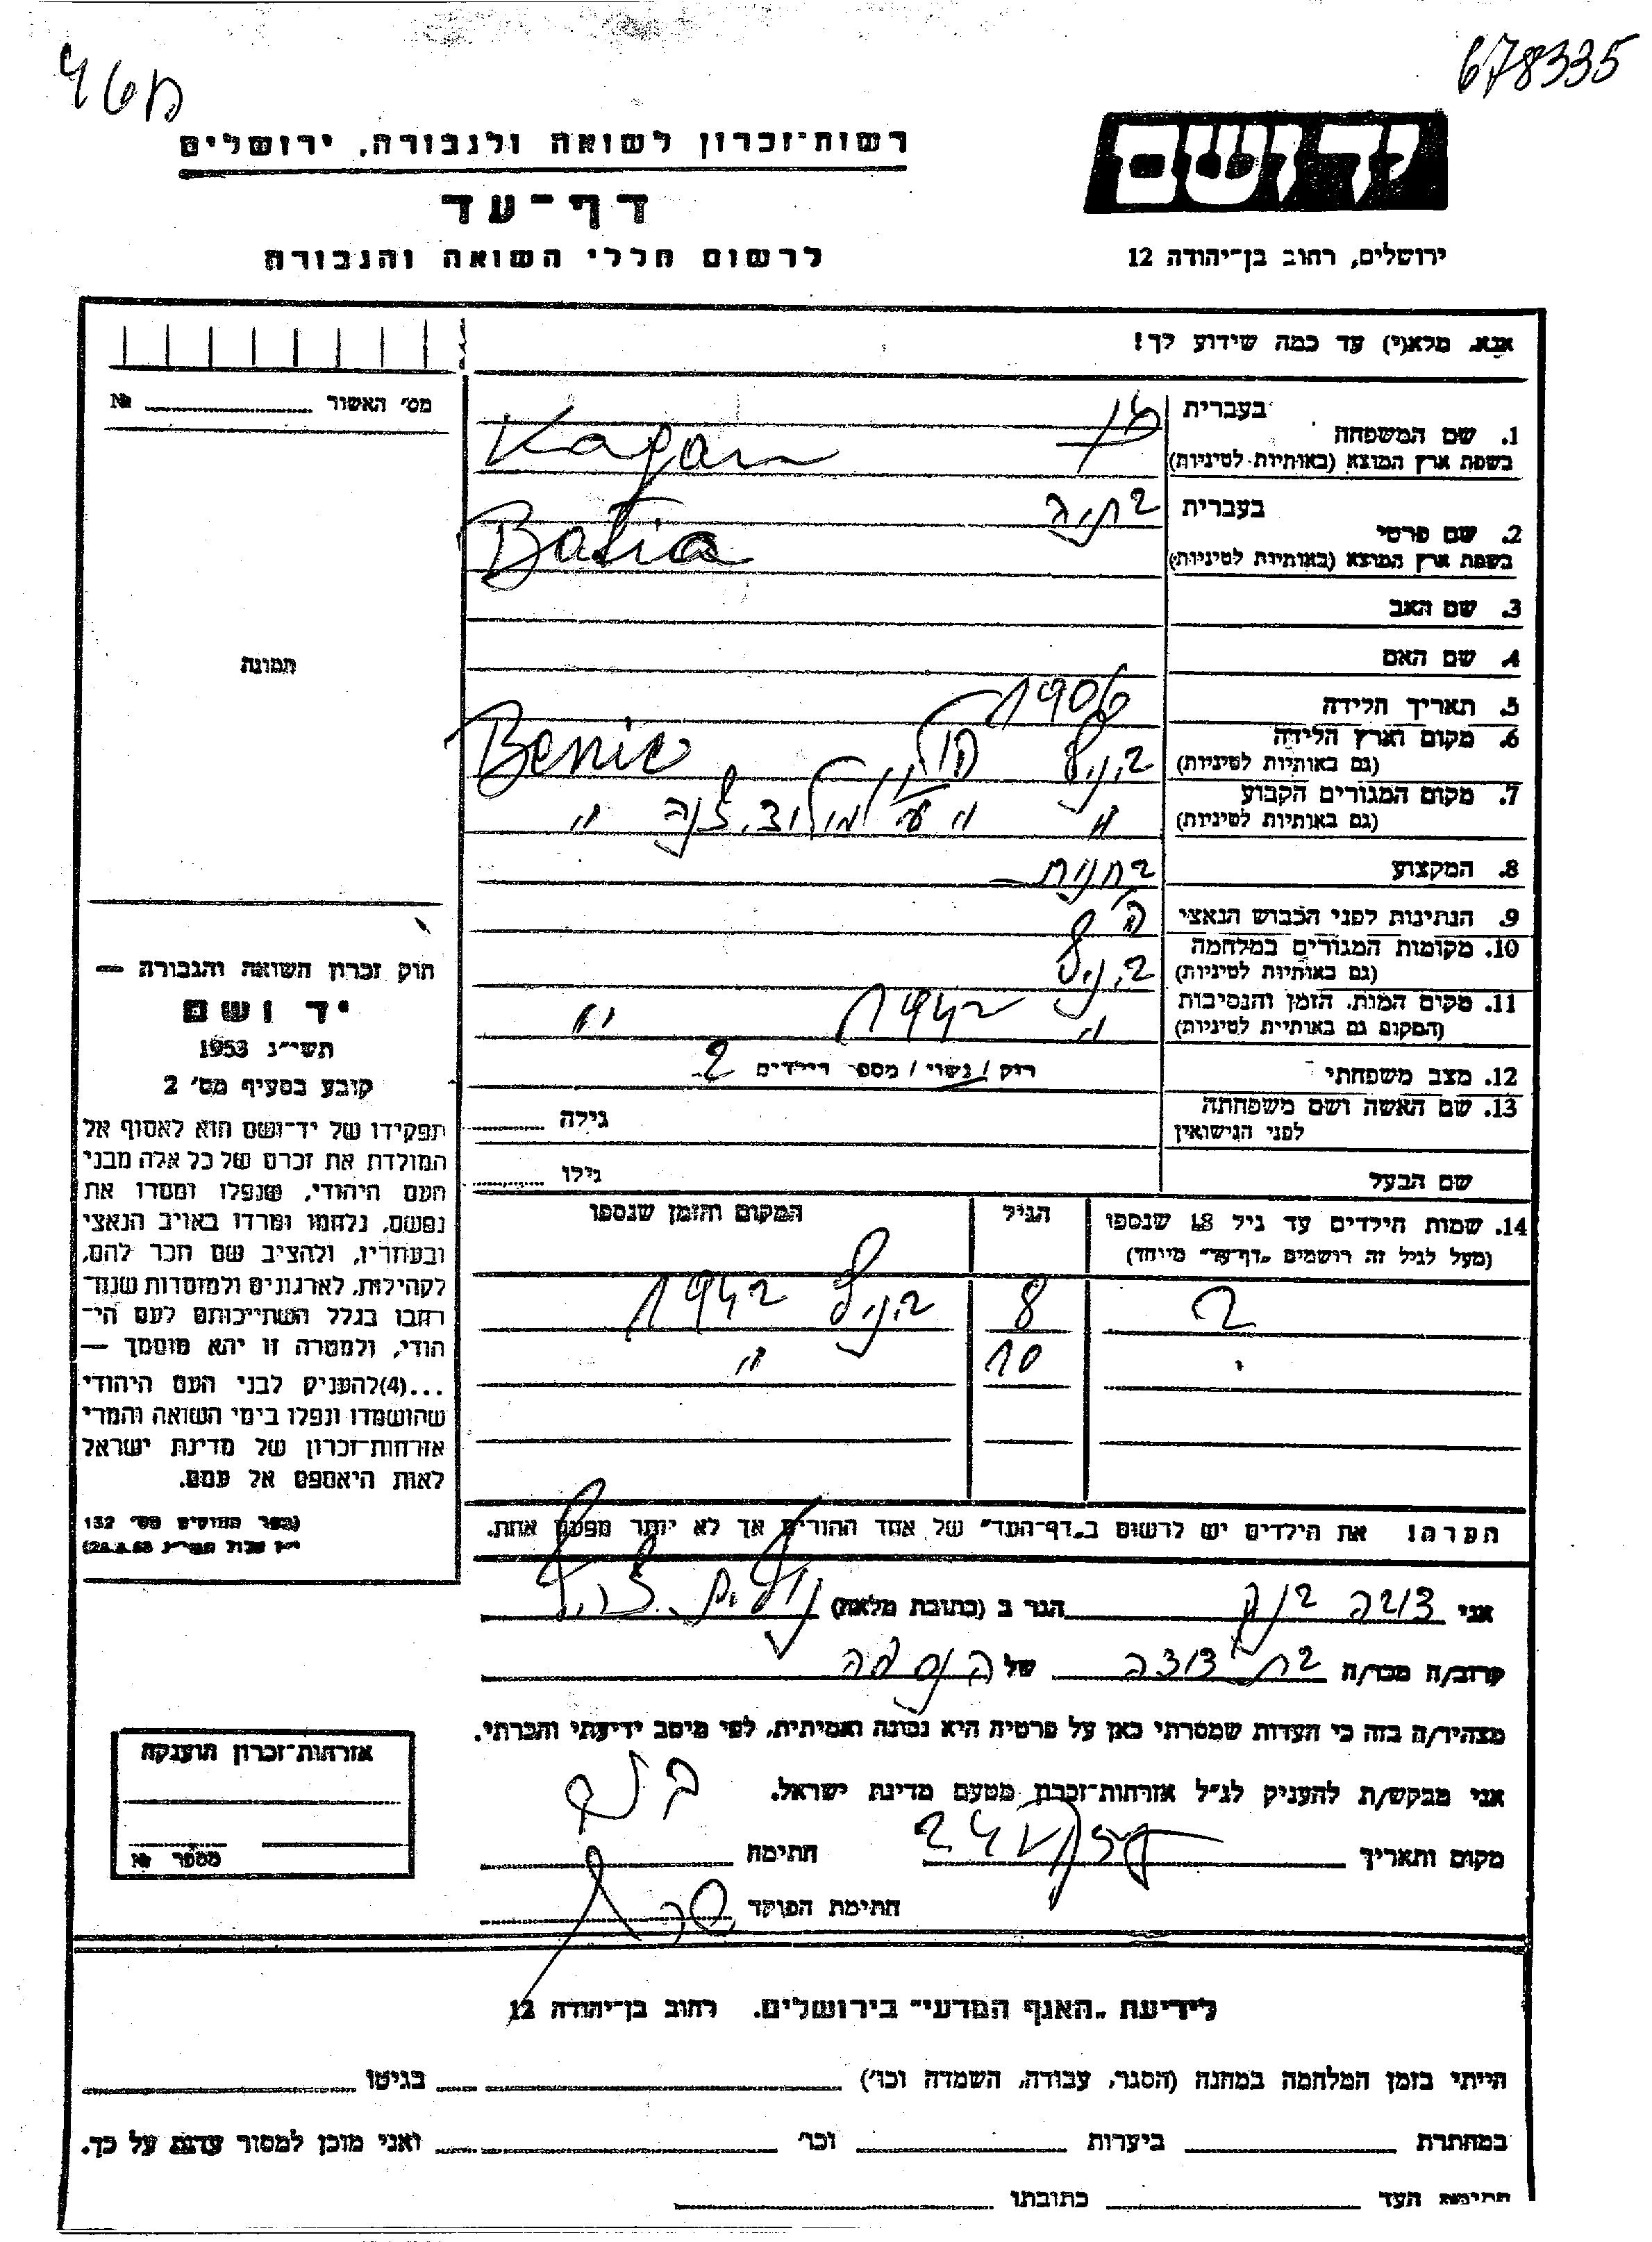 678335
46
רשות־זכרון לשואה ולגבורה, ירושלים
יד ושם
דף־עד
לרשום חללי השואה והגבורה
ירושלים, רחוב בן־יהודה 12
אנא, מלא(י) עד כמה שידוע לך!
מס׳ האשור № 
תמונה
חוק זכרון השואה והגבורה —
יד ושם
תשי״ג 1953
קובע בסעיף מס׳ 2
תפקידו של יד־ושם הוא לאסוף אל
המולדת את זכרם של כל אלה מבני
העם היהודי, שנפלו ומסרו את
נפשם, נלחמו ומרדו באויב הנאצי
ובעוזריו, ולהציב שם וזכר להם,
לקהילות, לארגונים ולמוסדות שנח־
רבו בגלל השתייכותם לעם הי־
הודי, ולמטרה זו יהא מוסמך —
...(4)להעניק לבני העם היהודי
שהושמדו ונפלו בימי השואה והמרי
אזרחות־זכרון של מדינת ישראל
לאות היאספם אל עמם.
(ספר החוקים מס׳ 132
1. שם המשפחה בעברית כגן
בשפת ארץ המוצא (באותיות לטיניות) Kagan
2. שם פרטי בעברית בתיה
בשפת ארץ המוצא (באותיות לטיניות) Batia
3. שם האב
4. שם האם
5. תאריך הלידה 1906
6. מקום וארץ הלידה
(גם באותיות לטיניות) Benic
7. מקום המגורים הקבוע
(גם באותיות לטיניות) " " "
8. המקצוע
9. הנתינות לפני הכבוש הנאצי
10. מקומות המגורים במלחמה
(גם באותיות לטיניות)
11. מקום המות, הזמן והנסיבות
(המקום גם באותיות לטיניות) " 1942 "
12. מצב משפחתי רווק / נשוי / מספר הילדים 2
13. שם האשה ושם משפחתה
לפני הנישואין גילה
שם הבעל גילו
14. שמות הילדים עד גיל 18 שנספו הגיל המקום והזמן שנספו
(מעל לגיל זה רושמים „דף־עד״ מיוחד)
8 1942
10 "
הערה! את הילדים יש לרשום ב„דף־העד״ של אחד ההורים אך לא יותר מפעם אחת.
אני הגר ב (כתובת מלאה)
קרוב/ה מכר/ה בת דודה של הנספה
מצהיר/ה בזה כי העדות שמסרתי כאן על פרטיה היא נכונה ואמיתית, לפי מיטב ידיעתי והכרתי.
אני מבקש/ת להעניק לנ״ל אזרחות־זכרון מטעם מדינת ישראל.
מקום ותאריך חתימה
חתימת הפוקד
אזרחות־זכרון הוענקה
מספר №
לידיעת „האגף המדעי״ בירושלים, רחוב בן־יהודה 12
הייתי בזמן המלחמה במחנה (הסגר, עבודה, השמדה וכו׳) בגיטו
במחתרת ביערות וכו׳ ואני מוכן למסור עדות על כך.
חתימת העד כתובתו